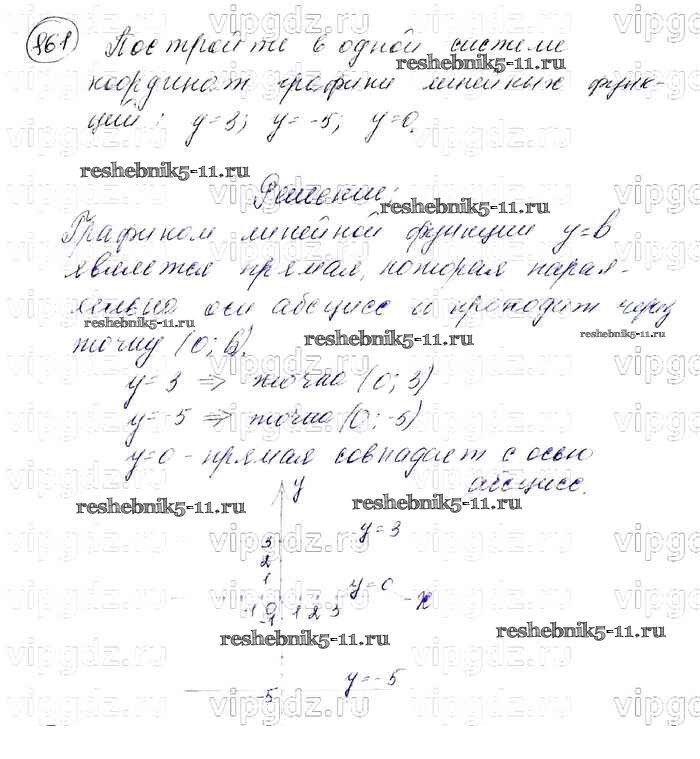 861 Постройте в одной системе
координат графики линейных функ-
ций: y=3; y=-5; y=0.
Решение:
Графиком линейной функции y=b
является прямая, которая парал-
лельна оси абсцисс и проходит через
точку (0; b).
y=3 ⇒ точка (0; 3)
y=-5 ⇒ точка (0; -5)
y=0 - прямая совпадает с осью
абсцисс.
y
3
y=3
2
1
y=0
-1 0 1 2 3
x
-1
-5
y=-5
reshebnik5-11.ru
reshebnik5-11.ru
reshebnik5-11.ru
reshebnik5-11.ru
reshebnik5-11.ru
reshebnik5-11.ru
reshebnik5-11.ru
reshebnik5-11.ru
reshebnik5-11.ru
reshebnik5-11.ru
vipgdz.ru